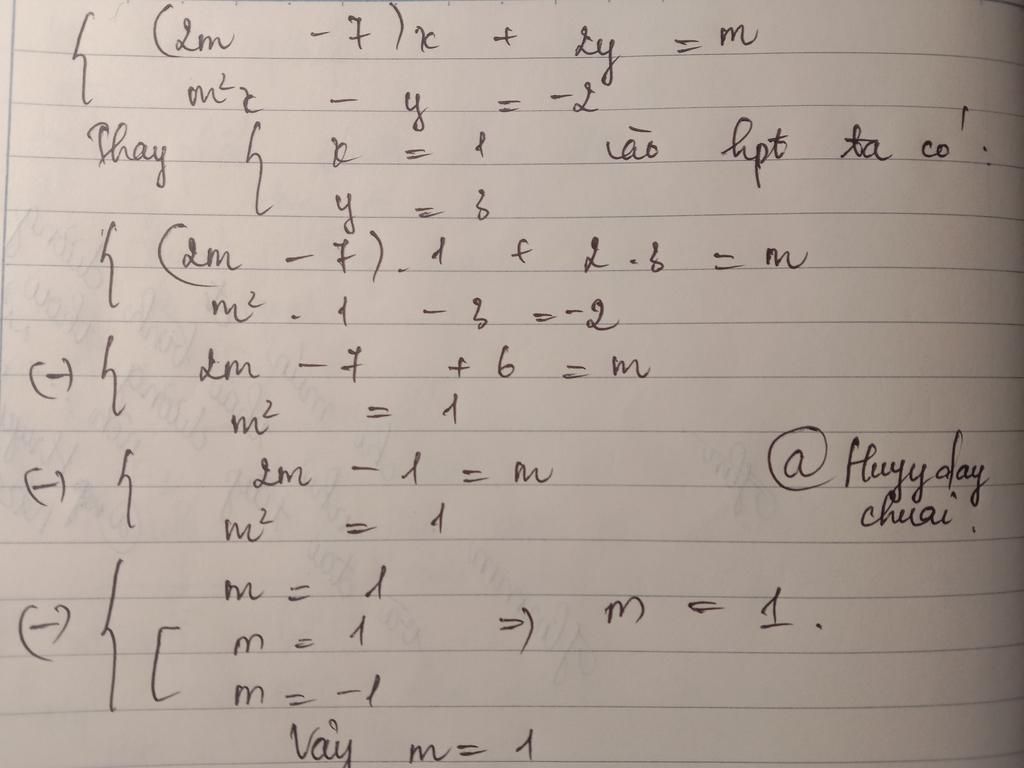 { (2m - 7)x + 2y = m
m²x - y = -2
Thay { x = 1 vào hpt ta có:
y = 3
{ (2m - 7) . 1 + 2 . 3 = m
m² . 1 - 3 = -2
(-) { 2m - 7 + 6 = m
m² = 1
(-) { 2m - 1 = m
m² = 1
@ Huyy đay
chuai.
(-) { m = 1
[ m = 1 => m = 1.
m = -1
Vậy m = 1